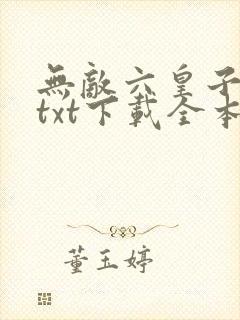 無敵六皇子
txt下載全本
董玉婷